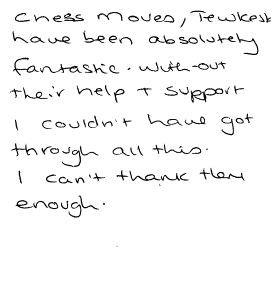 Chess Moves, Tewkesb
have been absolutely
fantastic. With-out
their help + support
I couldn't have got
through all this.
I can't thank them
enough.